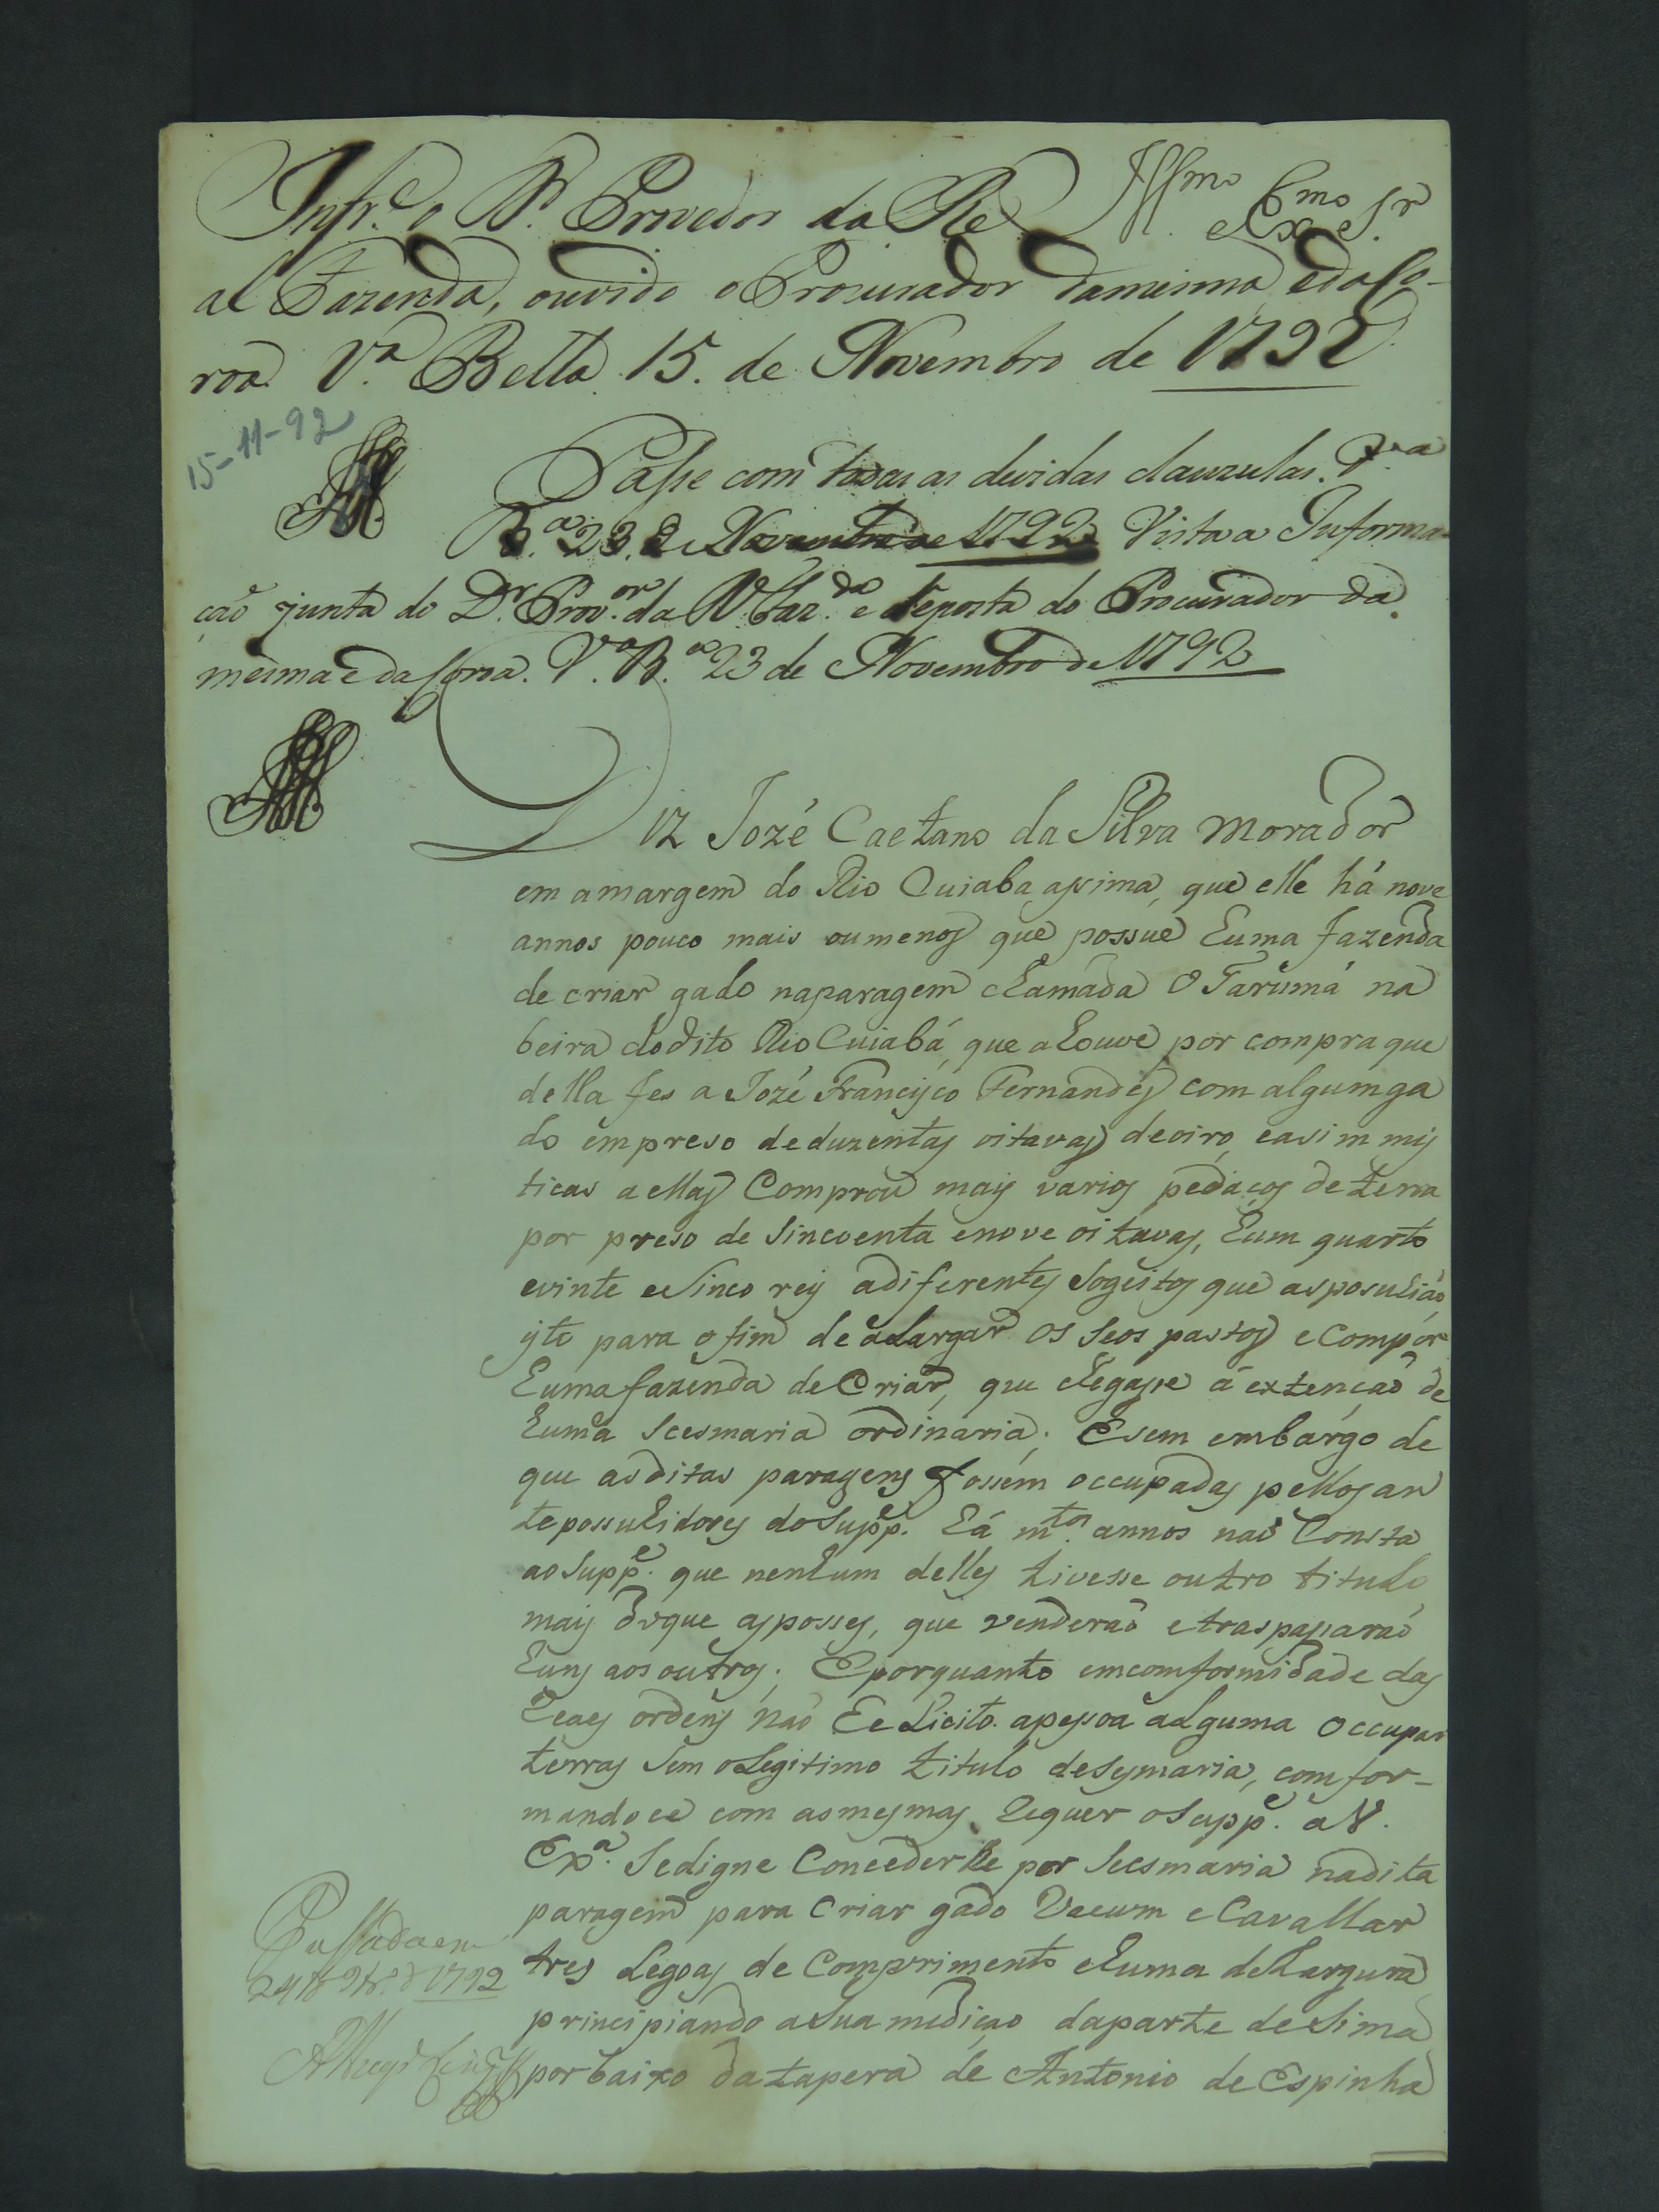 Illmo e Exmo Sr.
Infre. o Dr. Provedor da Re
al Fazenda, ouvido o Procurador da mesma, e da Co-
roa. Va. Bella 15. de Novembro de 1792.
15-11-92
Passe com todas as devidas clauzulas.
Ba. 23. de Novembro de 1792 Vista a Informa-
ção junta do Dr. Provor. da R. Fazda. e Reposta do Procurador da
mesma e da Coroa. Va. Ba. 23 de Novembro de 1792
Diz Jozé Caetano da Silva morador
em a margem do Rio Cuiaba assima, que elle há nove
annos pouco mais ou menos que possue huma fazenda
de criar gado na paragem chamada O Tarumá na
beira do dito Rio Cuiabá, que a houve por compra que
della fes a Jozé Francisco Fernandes com algum ga
do em preso de duzentas oitavas de oiro, e asim mis
ticas a ellas Comprou mais varios pedaços de terra
por preso de sincoenta e nove oitavas, hum quarto
e vinte e sinco reis a diferentes sogeitos que as posuhião
isto para o fim de alargar os seos pastos e compor
huma fazenda de Criar, que chegasse á extenção de
huma Scesmaria ordinaria; E sem embargo de
que as ditas paragens fossem occupadas pellos an
te possuhidores do Suppe. há mtos. annos não Consta
ao Suppe. que nenhum delles tivesse outro titulo
mais do que as posses, que venderão e traspassarão
huns aos outros; E porquanto em comformidade das
Reaes ordens não he Licito a pessoa alguma occupar
terras sem o Legitimo titulo de Sesmaria, comfor-
mandoce com as mesmas, Requer o Suppe. a V.
Exa. Se digne Concederlhe por Scesmaria na dita
paragem para Criar gado Vacum e Cavallar
tres Legoas de Comprimento e huma de Largura
principiando a sua medição da parte de sima
por baixo da tapera de Antonio de Espinha
Passada em
24 de 9bro. de 1792